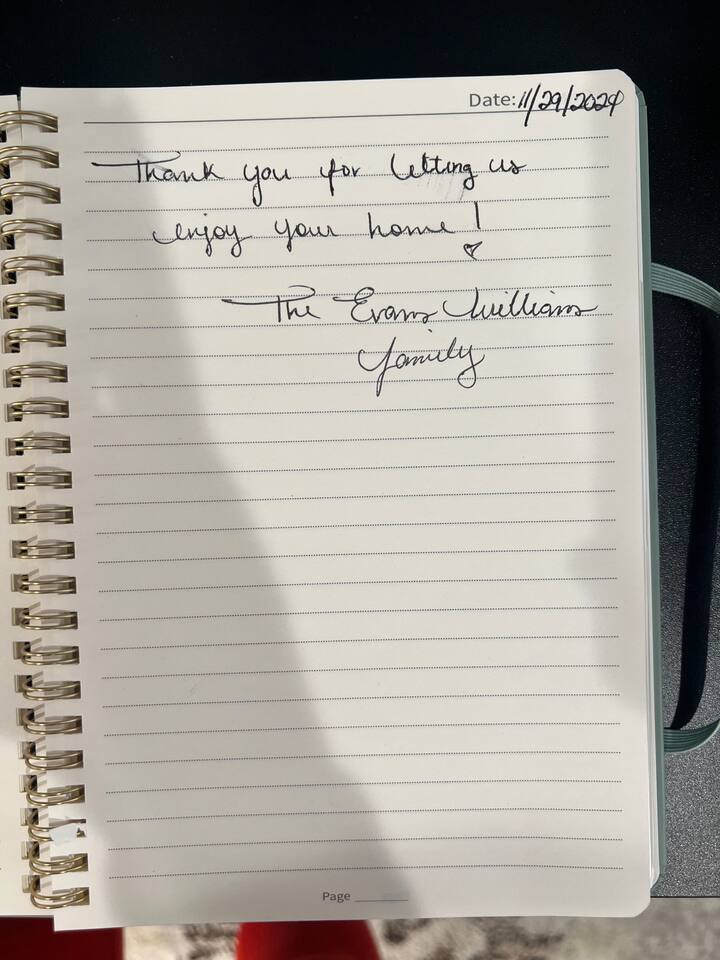 Date: 11/29/2024
Thank you for letting us
enjoy your home!
The Evans Williams
family
Page